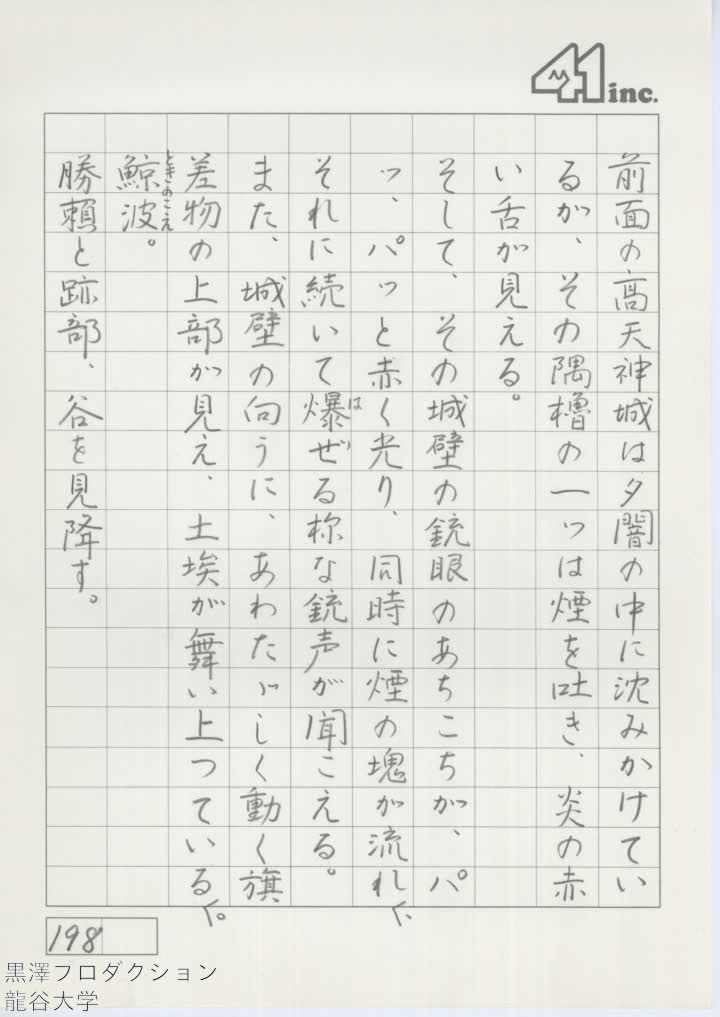 41 inc.
前面の高天神城は夕闇の中に沈みかけてい
るが、その隅櫓の一つは煙を吐き、炎の赤
い舌が見える。
そして、その城壁の銃眼のあちこちが、パ
ッ、パッと赤く光り、同時に煙の塊が流れ、
それに続いて爆ぜる様な銃声が聞こえる。
は
また、城壁の向うに、あわたゞしく動く旗
差物の上部が見え、土埃が舞い上っている。
鯨波。
ときのこえ
勝頼と跡部、谷を見降す。
198
黒澤プロダクション
龍谷大学